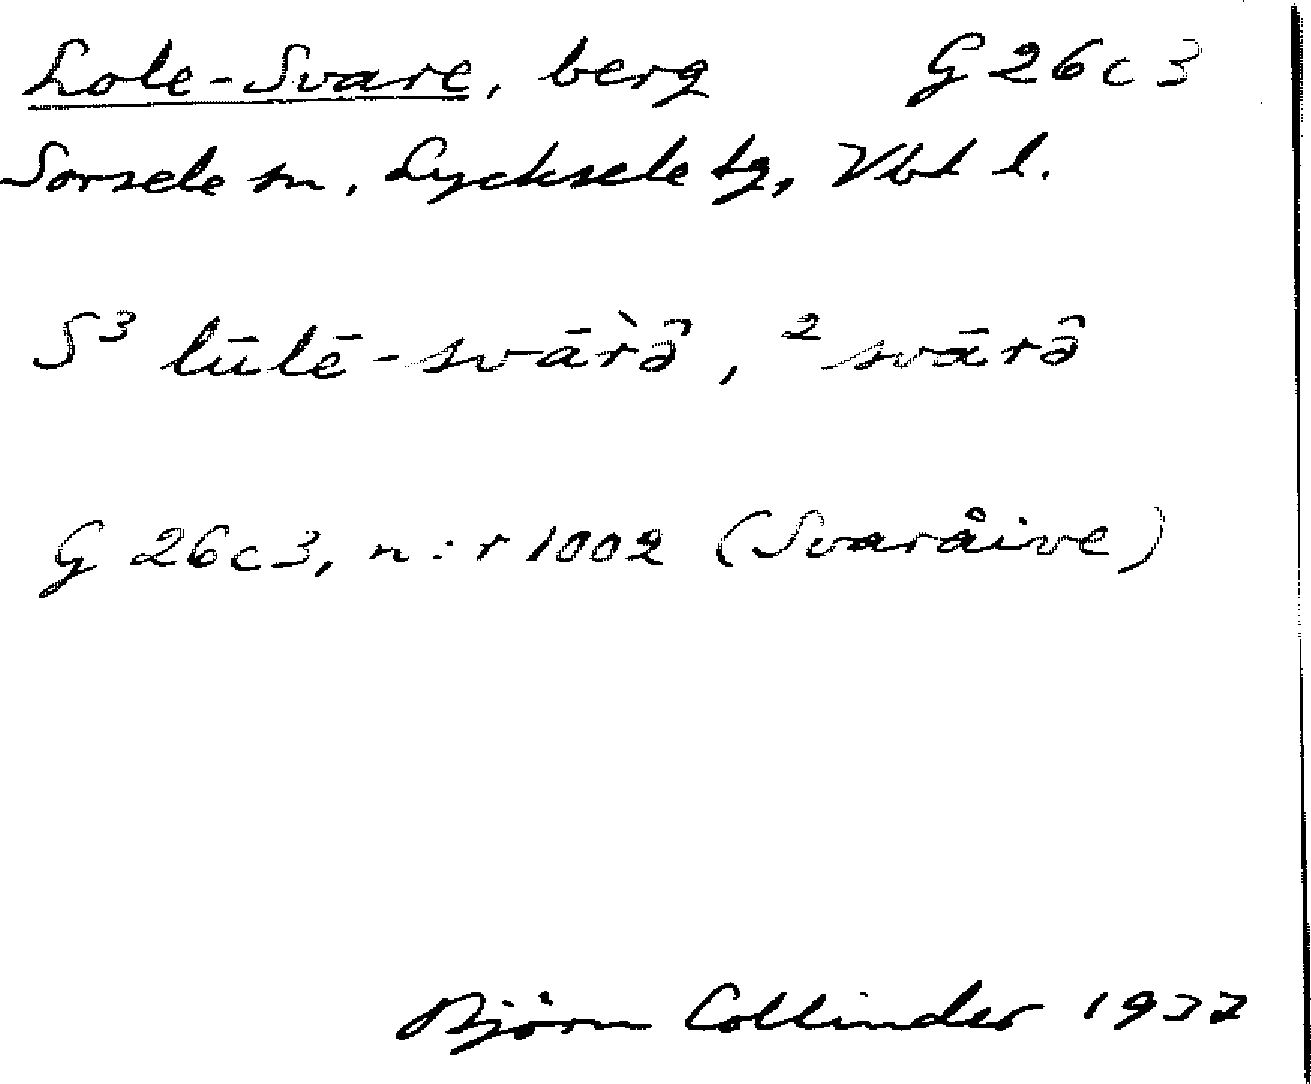 Lole-Svare, berg G 26 c 3
Sorsele sn, Lycksele tg, Vbl l.
S³ lūlē-svārə̂, ² svārə̂
G 26 c 3, n:r 1002 (Svaråive)
Björn Collinder 1937